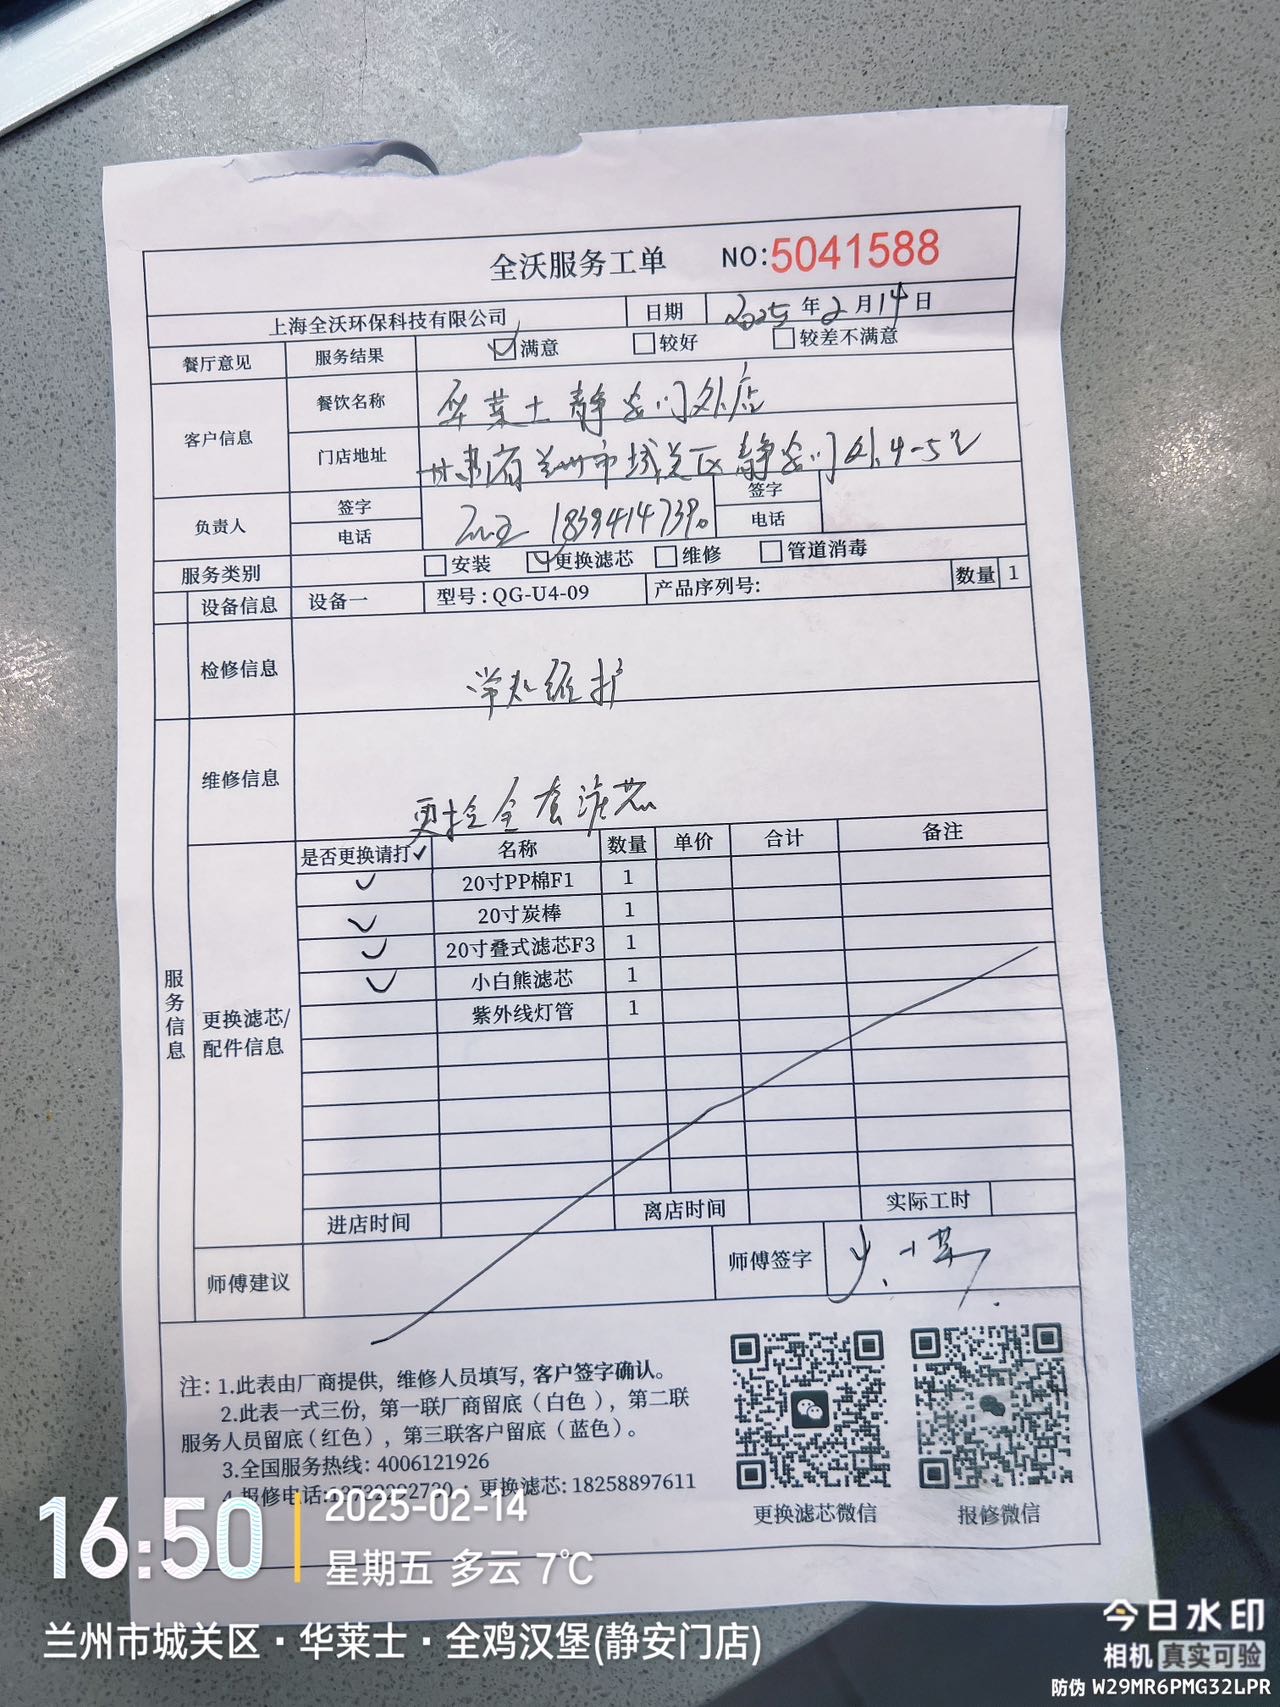 全沃服务工单 NO:5041588
上海全沃环保科技有限公司 日期 2025年2月14日
餐厅意见 服务结果 满意 较好 较差不满意
客户信息 餐饮名称 华莱士静安门外店
门店地址 甘肃省兰州市城关区静安门外4-5号
负责人 签字 签字
电话 1839414739 电话
服务类别 安装 更换滤芯 维修 管道消毒
设备信息 设备一 型号:QG-U4-09 产品序列号: 数量 1
检修信息 常规维护
维修信息 更换全套滤芯
服务信息
更换滤芯/
配件信息
是否更换请打✓ 名称 数量 单价 合计 备注
✓ 20寸PP棉F1 1
✓ 20寸炭棒 1
✓ 20寸叠式滤芯F3 1
✓ 小白熊滤芯 1
紫外线灯管 1
进店时间 离店时间 实际工时
师傅建议 师傅签字
注: 1.此表由厂商提供, 维修人员填写, 客户签字确认。
2.此表一式三份, 第一联厂商留底(白色), 第二联
服务人员留底(红色), 第三联客户留底(蓝色)。
3.全国服务热线: 4006121926
4.报修电话: ; 更换滤芯: 18258897611
更换滤芯微信 报修微信
16:50 2025-02-14
星期五 多云 7℃
兰州市城关区·华莱士·全鸡汉堡(静安门店)
今日水印
相机 真实可验
防伪 W29MR6PMG32LPR